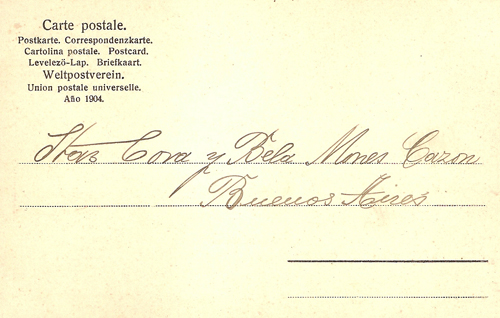 Carte postale.
Postkarte. Correspondenzkarte.
Cartolina postale. Postcard.
Levelező-Lap. Briefkaart.
Weltpostverein.
Union postale universelle.
Año 1904.
Stas Cora y Bela Mones Cazon
Buenos Aires